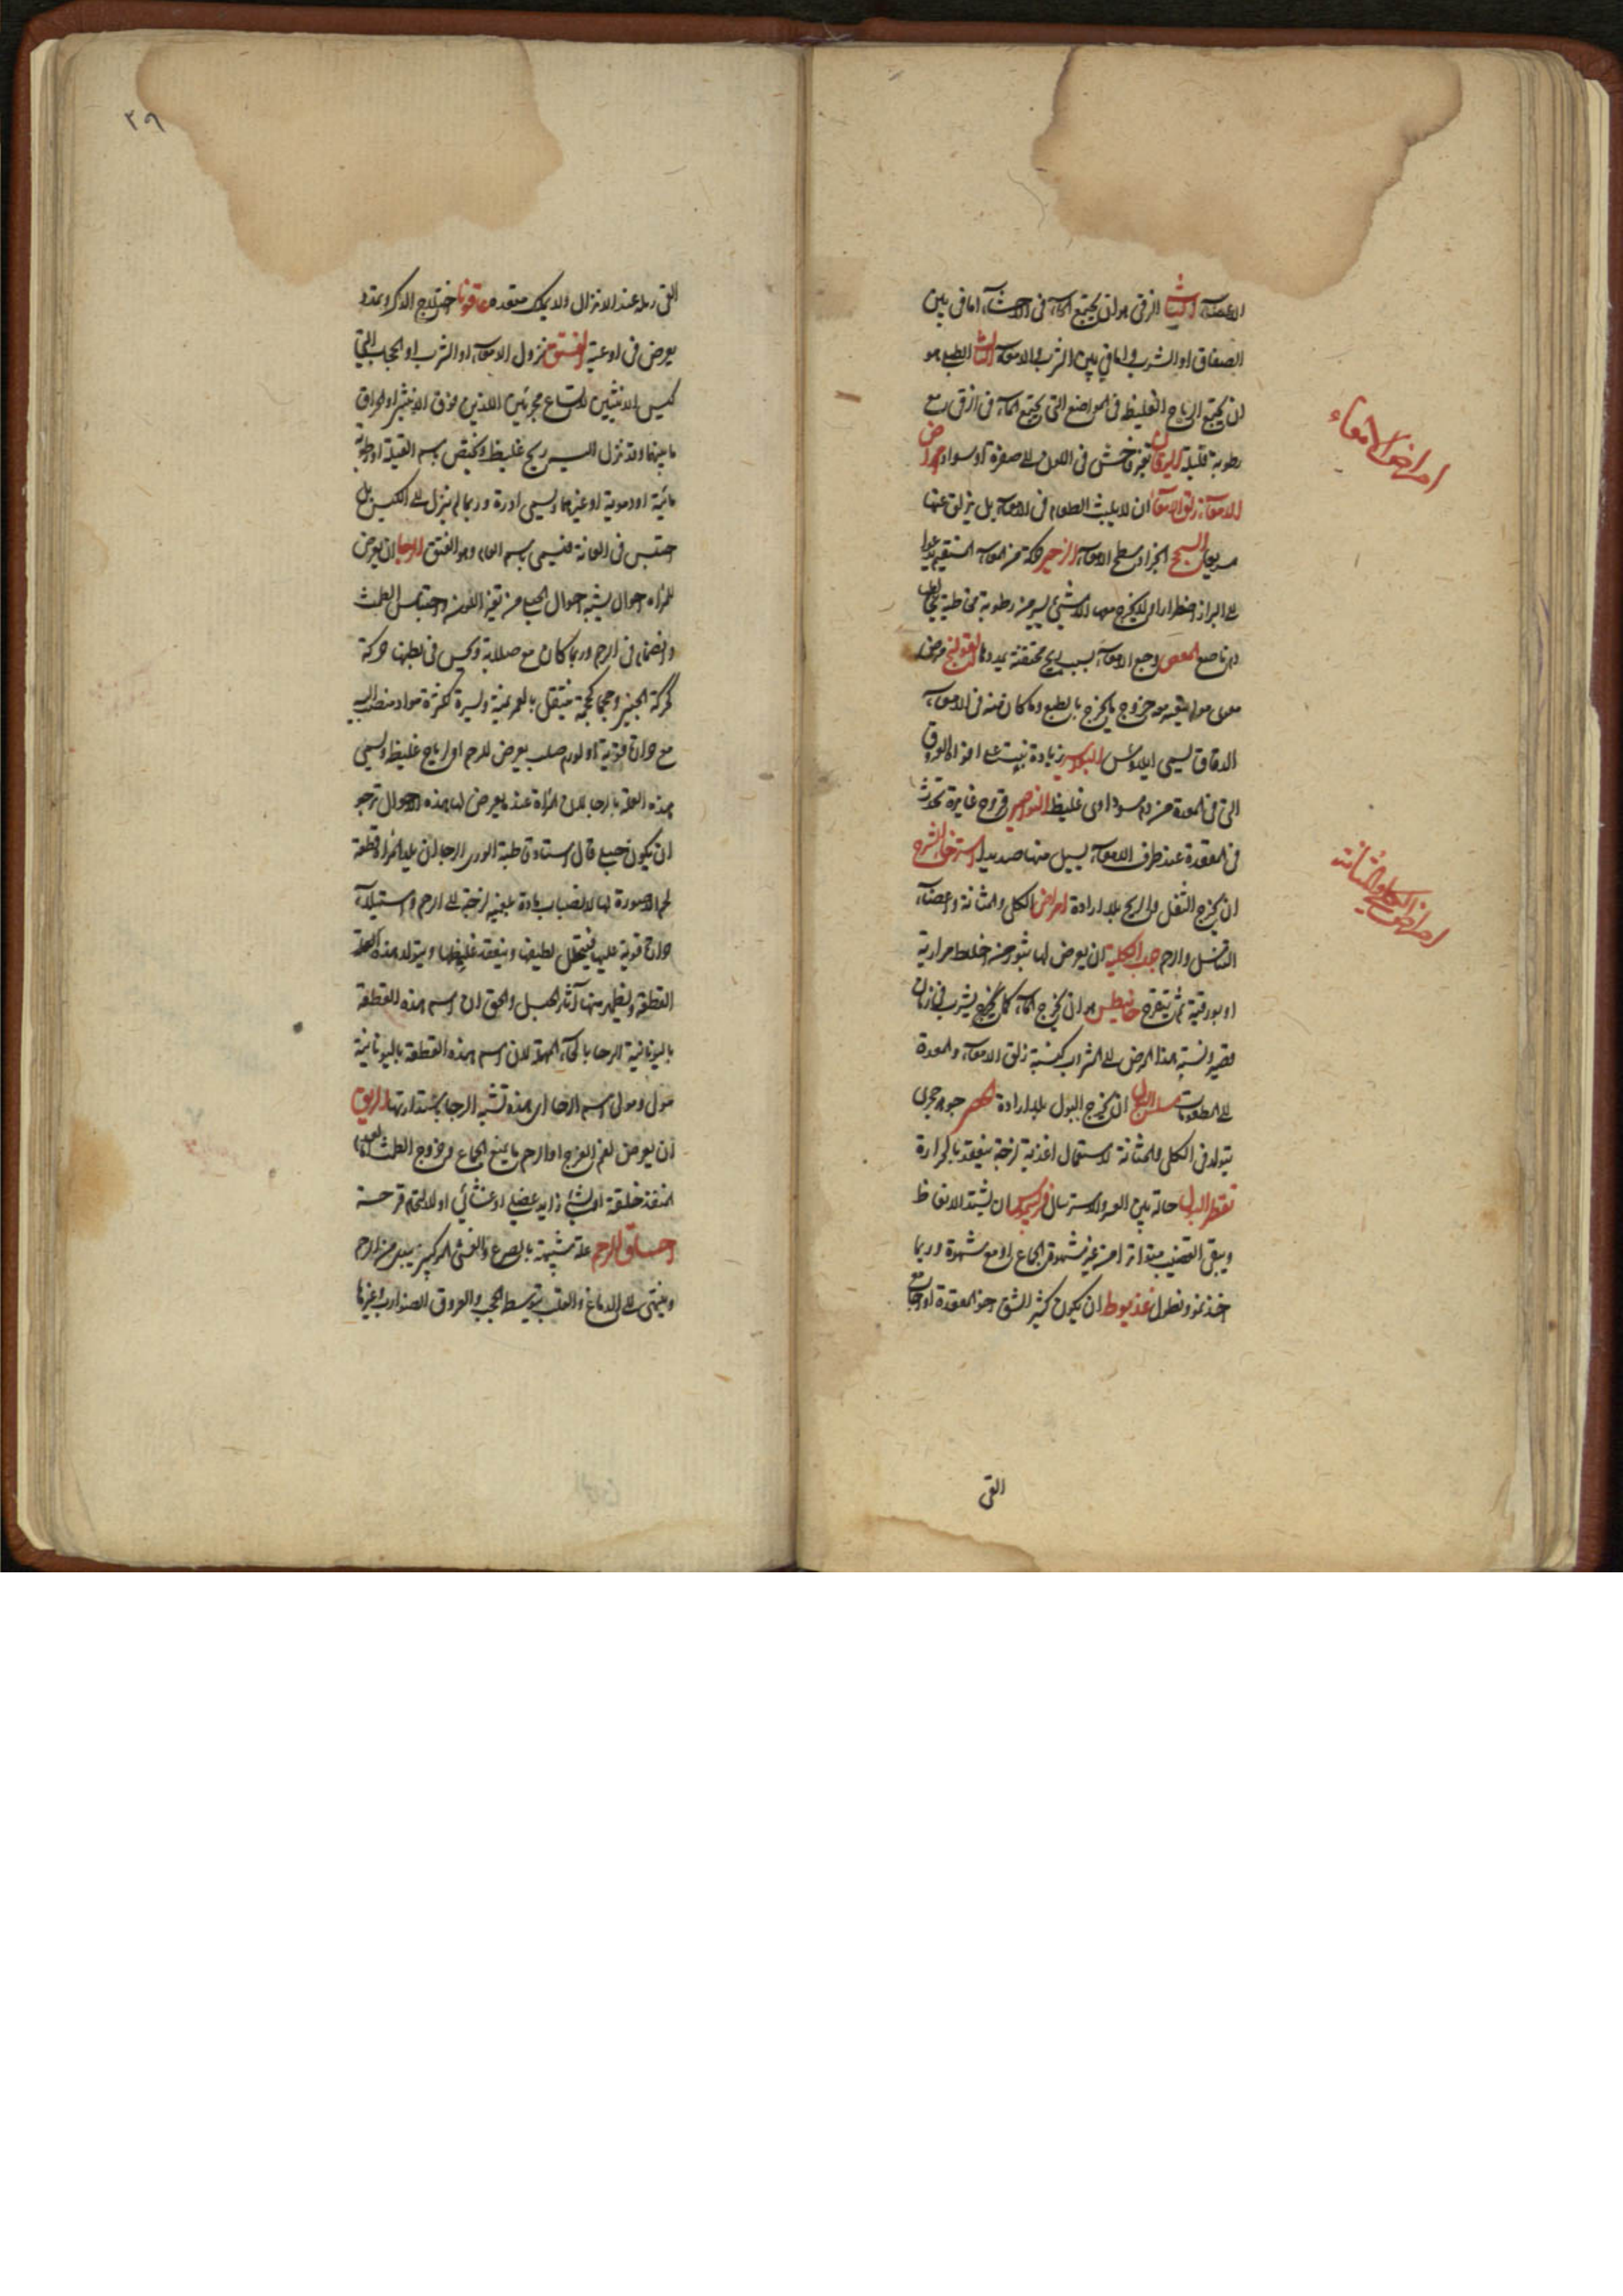 الاعضاء الثانى الزقى هو ان يجتمع الماء فى الاحشاء اما فى بين
الصفاق او الثرب واما فى بين الثرب والامعاء الثالث الطبلى هو
ان يجتمع الرياح الغليظ فى المواضع التى يجتمع الماء فى الزقى مع
رطوبة قليلة اليرقان تغير فاحش فى اللون الى صفرة او سواد امراض
الامعاء زلق الامعاء ان لا يلبث الطعام فى الامعاء بل يزلق عنها
سريعا السحج انجراد سطح الامعاء الزحير حركة من المعاء المستقيم يدعوا
الى البراز اضطرارا ولا يخرج منها الا شيئ يسير من رطوبة مخاطية يخالطها
دم ناصع المغص وجع الامعاء بسبب ريح محتقنة يمددها القولنج مرض
معوى مولم يتعسر معه خروج ما يخرج بالطبع وما كان منه فى الامعاء
الدقاق يسمى ايلاوس البواسير زيادة تنبت على افواه العروق
التى فى المعدة من دم سوداوى غليظ النواصير قروح غايرة تحدث
فى المقعدة عند طرف الامعاء يسيل منها صديد استرخاء الشرج
ان يخرج الثفل والريح بلا ارادة امراض الكلى والمثانة واعضاء
التناسل والرحم جرب الكلية ان يعرض لها بثور من اخلاط مرارية
او بورقية ثم يتقرح ديانيطس هو ان يخرج الماء كما يخرج يشرب فى زمان
قصير ونسبة هذا المرض الى الشراب كنسبة زلق الامعاء والمعدة
الى المطعومات سلس البول ان يخرج البول بلا ارادة الحصى جوهر حجرى
يتولد فى الكلى والمثانة لاستعمال اغذية لزجة ينعقد بالحرارة
تقطير البول حالة بين العسر والاسترسال فريسموس ان يشتد الانعاظ
ويبقى القضيب متواترا من غير شهوة الجماع او مع شهوة وربما
اخذ تمدد وتطول عذيوط ان يكون كثير الشق
القى
امراض الامعاء
امراض الكلى والمثانة
٣٩
القى رمله عند الانزال ولا يملك مقعدة عاقونا اختلاج الذكر وتمدد
يعرض فى اوعية الفتق نزول الامعاء او الثرب او الحجاب الى
كيس الانثيين لاتساع مجرئين اللذين فوق الانثيين او انخراق
ما بينهما وقد ينزل اليه ريح غليظ ويختص باسم القيلة او رطوبة
مائية او دموية او غيرهما ويسمى ادرة وربما لم ينزل الى الكيس بل
احتبس فى العانة فيسمى باسم العام وهو الفتق الرجا ان يعرض
للمراة احوال يشبه احوال الحبلى من تغير اللون واحتباس الطمث
وانضمام فى الرحم وربما كان مع صلابة ويحس فى بطنها حركة
كحركة الجنين وحجما كحجمه ينتقل بالغمز يمنة ويسرة لكثرة مواد منصب اليه
مع حرارة قوية او لورم صلب يعرض للرحم او لرياح غليظ ويسمى
هذه العلة بالرجا لان المراة عند ما يعرض لها هذه الاحوال ترجو
ان يكون حبلى قال استاد قاطبة الورى الرجا ان يلد المراة قطعة
لحم لا صورة لها لانصباب مادة بلغمية لزجة الى الرحم واستيلاء
حرارة قوية عليها فيتحلل لطيفها وينعقد غليظها ويتولد هذه العلة
القطعة ويظهر منها آثار الحبل والحق ان اسم هذه القطعة
باليونانية الرحا بالحاء المهملة لان اسم هذه القطعة باليونانية
مول ومولى اسم الرحا ان هذه تشبه الرحا باستدارتها الرتق
ان يعرض لفم الفرج او الرحم ما يمنع الجماع وخروج الطمث
المنفذ خلقة او لشئ زايد عضلى او غشائى او لالتحام قرحة
اختناق الرحم علة شبيهة بالصرع والغشى يبدء من الرحم
وينتهى الى الدماغ والقلب بتوسط الحجب والعروق الضوارب وغيرها